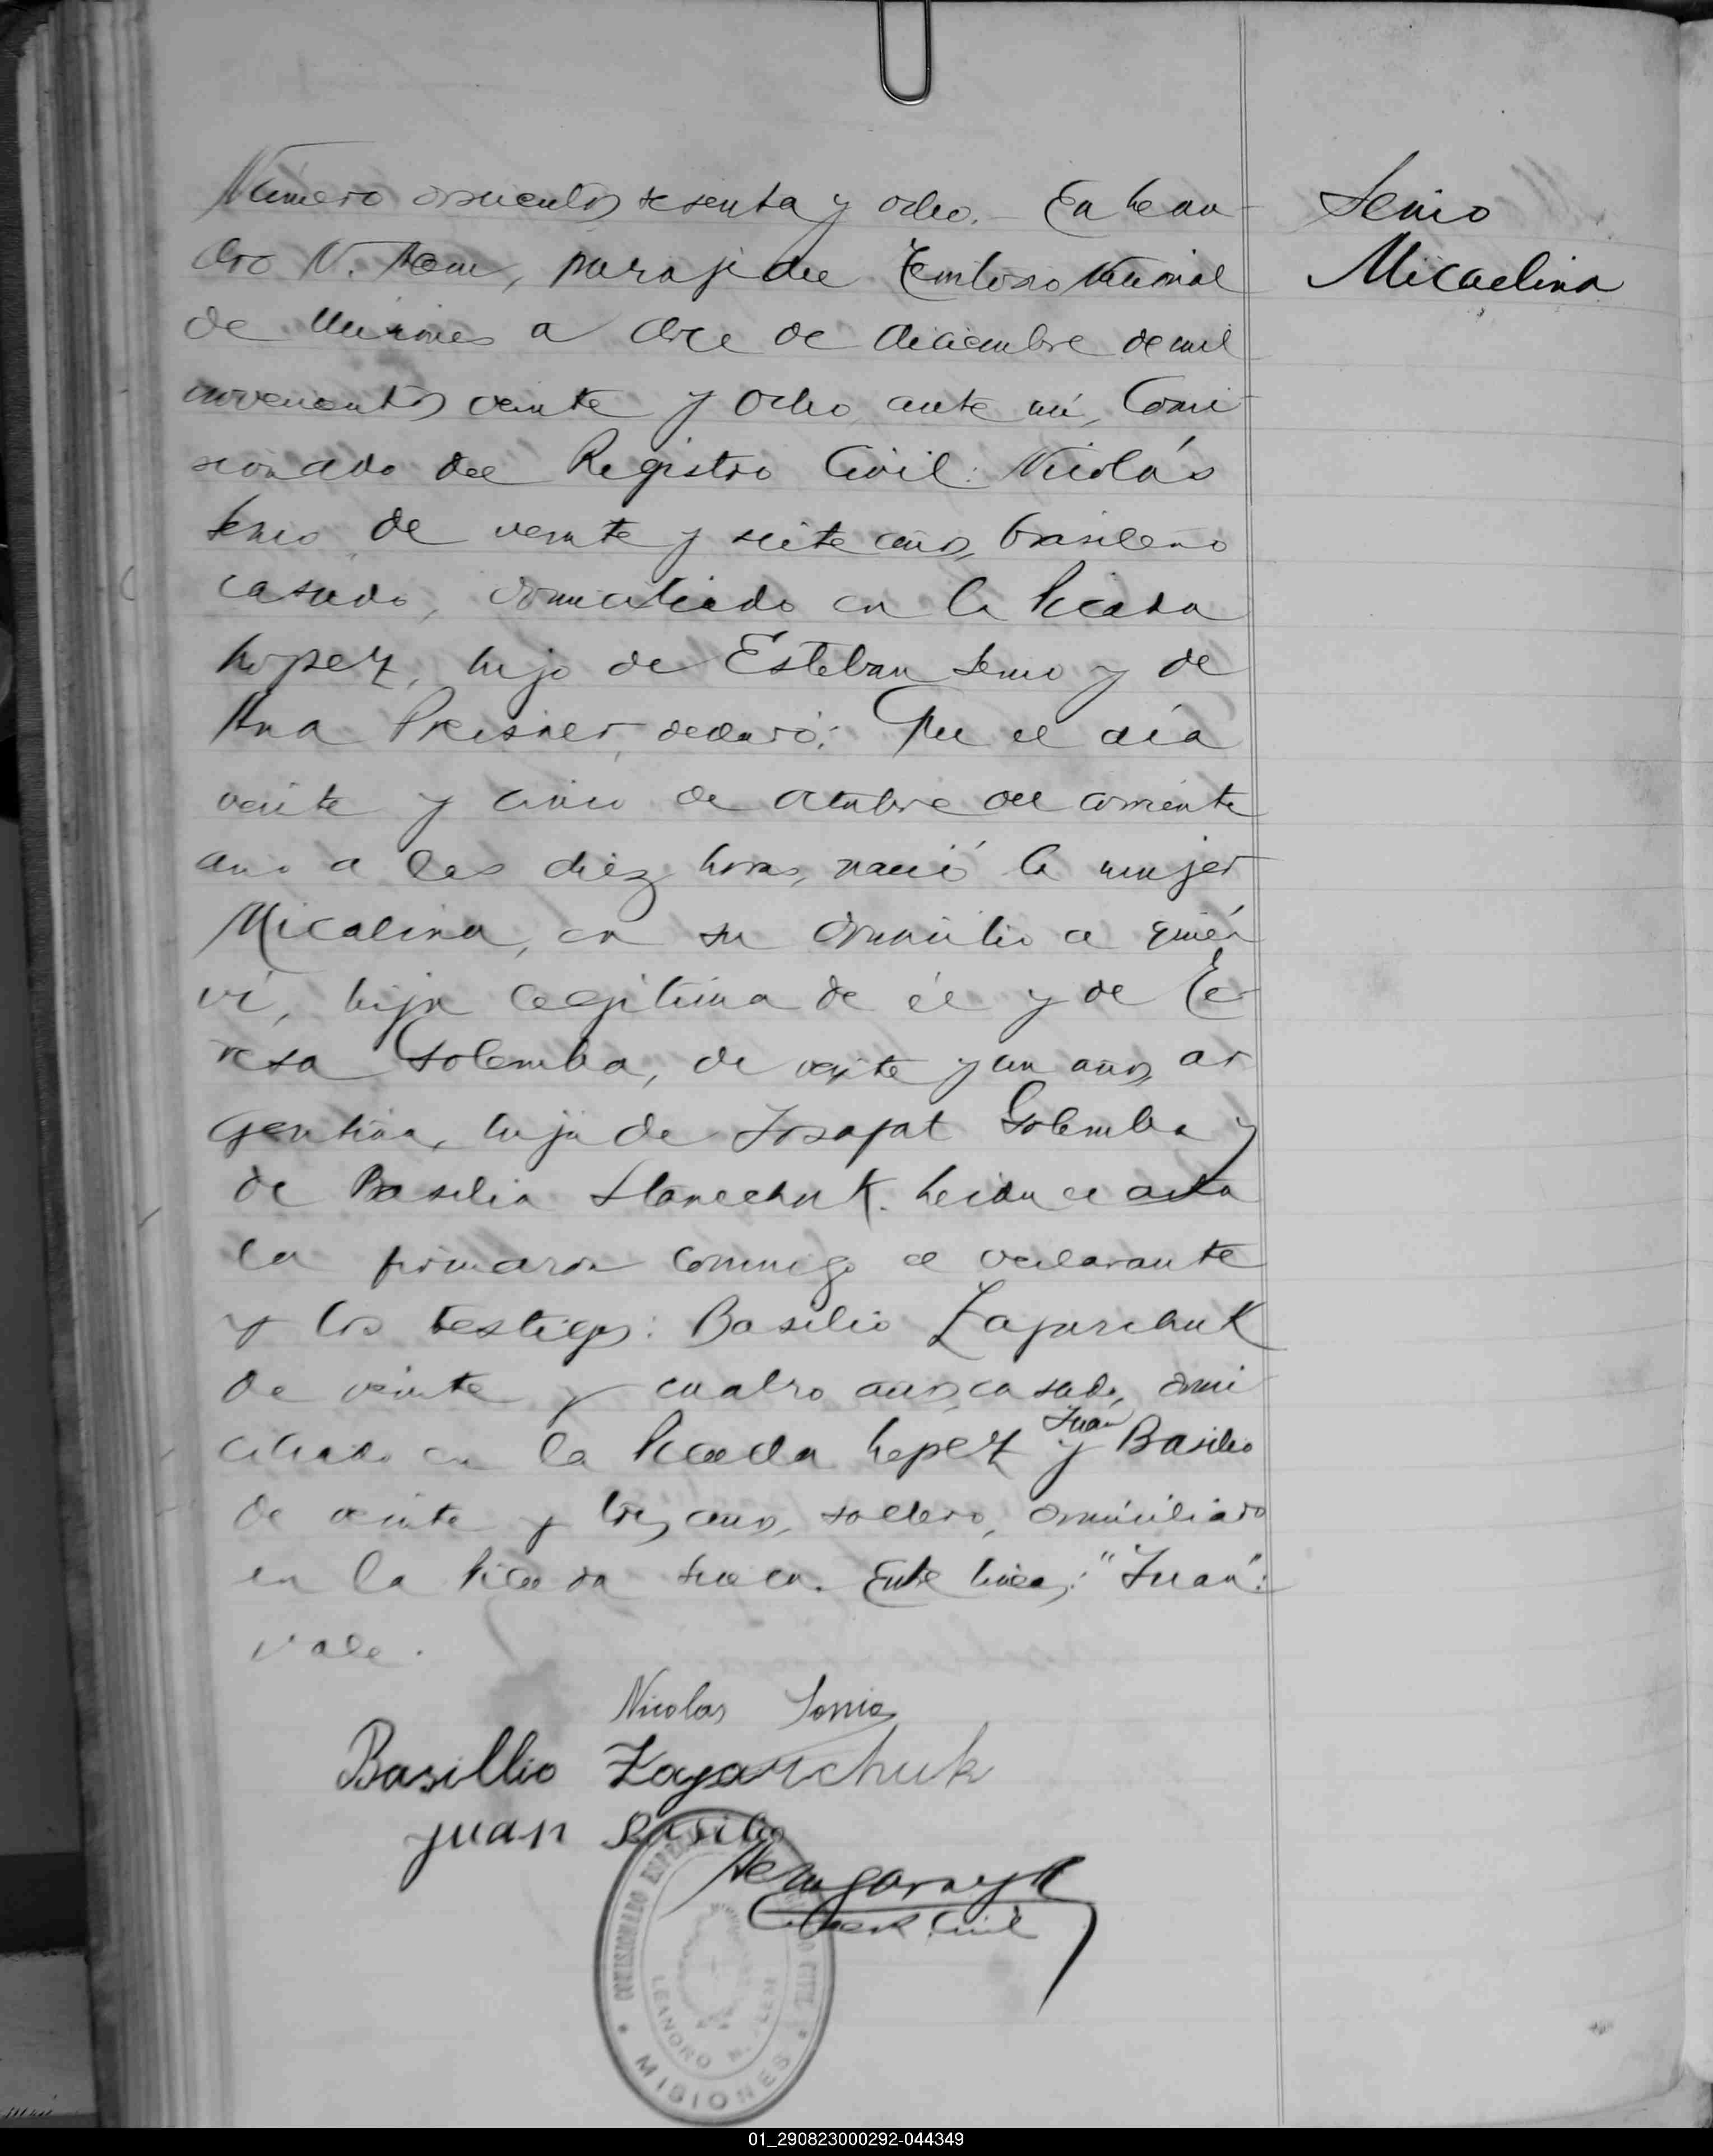 Número doscientos sesenta y ocho.- En Lean-
dro N. Alem, paraje del Territorio Nacional
de Misiones a doce de diciembre de mil
novecientos veinte y ocho, ante mí, Comi-
sionado del Registro Civil: Nicolás
Senio de veinte y siete años, brasileño
casado, domiciliado en la Picada
Lopez, hijo de Esteban Senio y de
Ana Preisner, declaró: Que el día
veinte y cinco de octubre del corriente
año a las diez horas, nació la mujer
Micalina, en su domicilio a quién
ví, hija legítima de él y de Te-
resa Golemba, de veinte y un años, ar
gentina, hija de Josafat Golemba y
de Basilia Slanechuk. Leida el acta
la firmaron conmigo el declarante
y los testigos: Basilio Zagarchuk
de veinte y cuatro años, casado, domi
ciliado en la Picada Lopez y Juán Basilio
de veinte y tres años, soltero, domiciliado
en la Picada Sueca. Entre lineas: "Juan":
vale.
Senio
Micaelina
Nicolas Senio
Basillio Zagarchuk
Juan Basilio
COMISIONADO ESPECIAL
CIVIL
LEANDRO N. ALEM
MISIONES